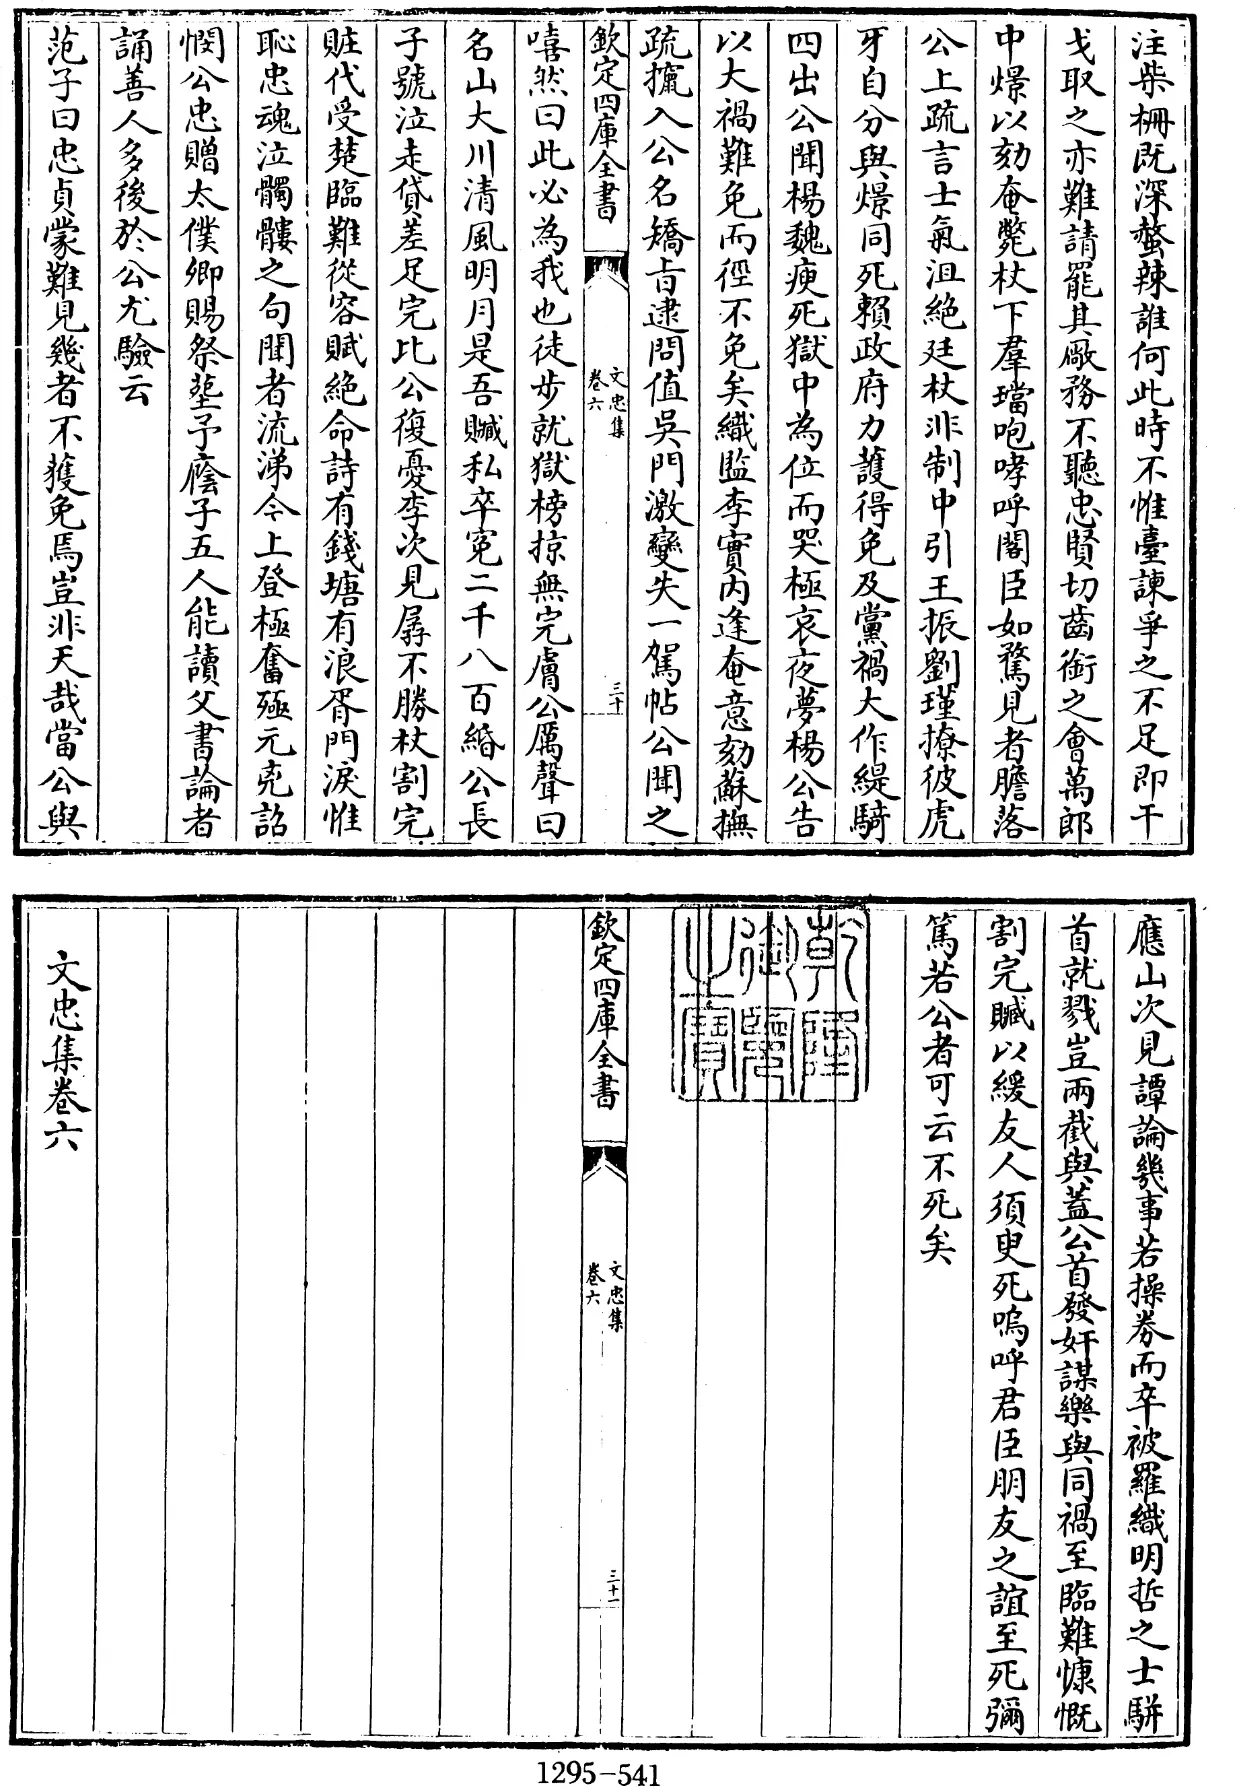 注柴柵既深螫辣誰何此時不惟臺諫爭之不足即干
戈取之亦難請罷其厰務不聽忠賢切齒銜之會萬郎
中燝以劾奄斃杖下羣璫咆哮呼閣臣如騖見者膽落
公上疏言士氣沮絶廷杖非制中引王振劉瑾撩彼虎
牙自分與燝同死賴政府力護得免及黨禍大作緹騎
四出公聞楊魏瘐死獄中為位而哭極哀夜夢楊公告
以大禍難免而徑不免矣織監李實内逢奄意劾蘇撫
疏攛入公名矯㫖逮問值吳門激變失一駕帖公聞之
欽定四庫全書
文忠集
卷六
三十
嘻然曰此必為我也徒步就獄榜掠無完膚公厲聲曰
名山大川清風明月是吾贓私卒寃二千八百緡公長
子號泣走貸差足完比公復憂李次見孱不勝杖割完
賍代受楚臨難從容賦絶命詩有錢塘有浪胥門淚惟
恥忠魂泣髑髏之句聞者流涕今上登極奮殛元兇詔
憫公忠贈太僕卿賜祭塟予廕子五人能讀父書論者
誦善人多後於公尤驗云
范子曰忠貞蒙難見幾者不獲免焉豈非天哉當公與
應山次見譚論幾事若操券而卒被羅織明哲之士駢
首就戮豈兩截與蓋公首發奸謀樂與同禍至臨難慷慨
割完贓以緩友人須臾死嗚呼君臣朋友之誼至死彌
篤若公者可云不死矣
乾隆御覽之寶
欽定四庫全書
文忠集
卷六
三十一
文忠集卷六
1295-541